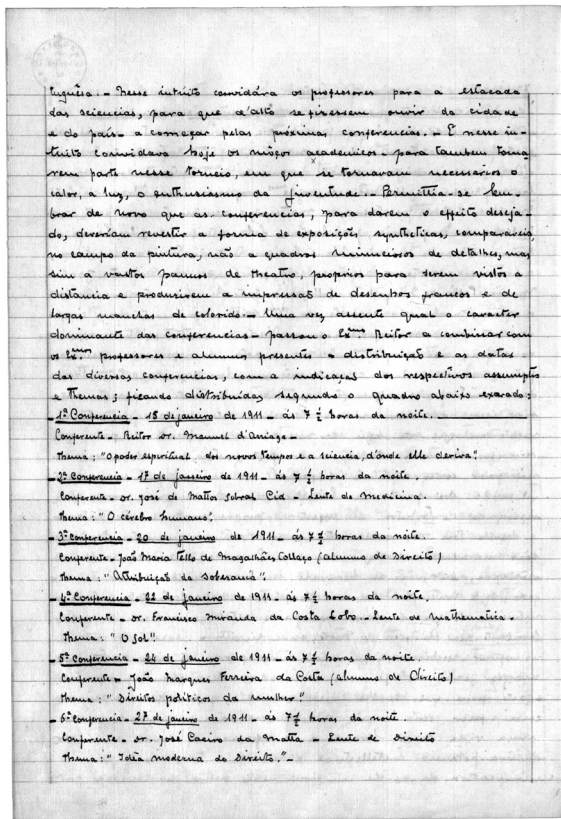 tuguêsa. - Nesse intuito convidára os professores para a estacada
das sciencias, para que d'alto se fizessem ouvir da cidade
e do país - a começar pelas próximas conferencias. - E nesse in-
tuito convidava hoje os môços academicos - para tambem toma-
rem parte nesse torneio, em que se tornavam necessarios o
calor, a luz, o enthusiasmo da juventude. - Permittia-se lem-
brar de novo que as conferencias, para darem o effeito deseja-
do, deveriam revestir a forma de exposições syntheticas, comparaveis,
no campo da pintura, não a quadros minuciosos de detalhes, mas
sim a vastos pannos de theatro, proprios para serem vistos a
distancia e produzirem a impressaõ de desenhos francos e de
largas manchas de colorido. - Uma vez assente qual o caracter
dominante das conferencias - passou o Exmo Reitor a combinar com
os Exmos professores e alumnos presentes a distribuiçaõ e as datas
das diversas conferencias, com a indicaçaõ dos respectivos assumptos
e Themas; ficando distribuidas, segundo o quadro abaixo exarado:
1ª Conferencia - 15 de janeiro de 1911 - ás 7 ½ horas da noite.
Conferente - Reitor Dr. Manuel d'Arriaga -
Thema: "O poder espiritual dos novos tempos e a sciencia, d'onde elle deriva".
- 2ª Conferencia - 17 de janeiro de 1911 - ás 7 ½ horas da noite.
Conferente - Dr. José de Mattos Sobral Cid - Lente de Medicina.
Thema: "O cérebro humano".
- 3ª Conferencia - 20 de janeiro de 1911 - ás 7 ½ horas da noite.
Conferente - João Maria Tello de Magalhães Collaço (alumno de Direito)
Thema: "Attribuiçaõ da Soberania".
- 4ª Conferencia - 22 de janeiro de 1911 - ás 7 ½ horas da noite.
Conferente - Dr. Francisco Miranda da Costa Lobo - Lente de mathematica -
Thema: "O Sol"
- 5ª Conferencia - 24 de janeiro de 1911 - ás 7 ½ horas da noite
Conferente - João Marques Ferreira da Costa (alumno de Direito)
Thema: "Direitos politicos da mulher".
- 6ª Conferencia - 27 de janeiro de 1911 - ás 7 ½ horas da noite.
Conferente - Dr. José Caeiro da Matta - Lente de Direito
Thema: "Idêa moderna do Direito." -